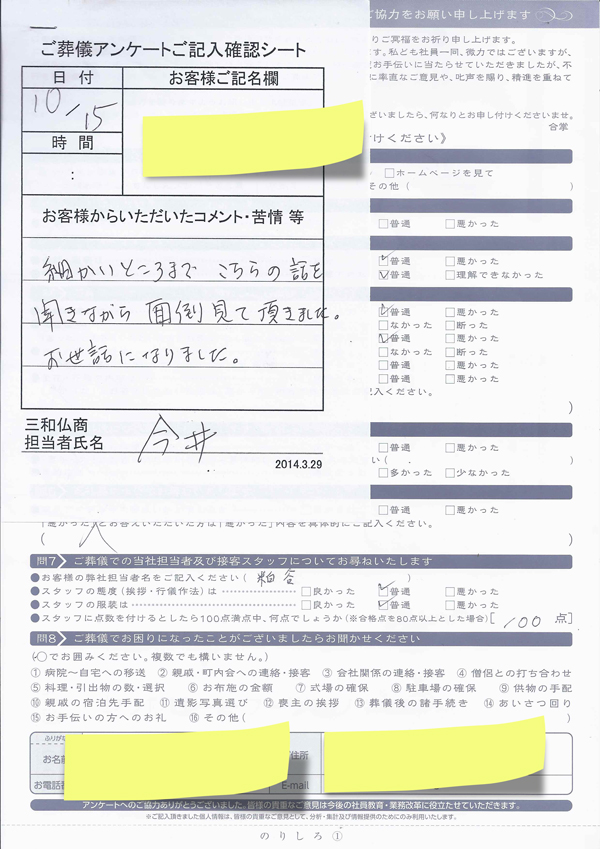 ご協力をお願い申し上げます
ご葬儀アンケートご記入確認シート
日付
お客様ご記名欄
10/15
時間
:
お客様からいただいたコメント・苦情 等
細かいところまで こちらの話を
聞きながら 面倒見て頂きました。
お世話になりました。
三和仏商
担当者氏名
今井
2014.3.29
りご冥福をお祈り申し上げます。
す。私ども社員一同、微力ではございますが、
お手伝いに当たらせていただきましたが、不
に率直なご意見や、叱声を賜り、精進を重ねて
ざいましたら、何なりとお申し付けくださいませ。
合掌
けください》
□ホームページを見て
その他( )
□普通 □悪かった
☑普通 □悪かった
☑普通 □理解できなかった
☑普通 □悪かった
□なかった □断った
☑普通 □悪かった
□なかった □断った
□普通 □悪かった
□普通 □悪かった
記入ください。
)
□普通 □悪かった
い( )
□多かった □少なかった
□普通 □悪かった
「悪かった」とお答えいただいた方は「悪かった」内容を具体的にご記入ください。
( )
問7 ご葬儀での当社担当者及び接客スタッフについてお尋ねいたします
●お客様の弊社担当者名をご記入ください( 粕谷 )
●スタッフの態度(挨拶・行儀作法)は □良かった ☑普通 □悪かった
●スタッフの服装は □良かった ☑普通 □悪かった
●スタッフに点数を付けるとしたら100点満点中、何点でしょうか(※合格点を80点以上とした場合)[ 100 点]
問8 ご葬儀でお困りになったことがございましたらお聞かせください
(○でお囲みください。複数でも構いません。)
①病院～自宅への移送 ②親戚・町内会への連絡・接客 ③会社関係の連絡・接客 ④僧侶との打ち合わせ
⑤料理・引出物の数・選択 ⑥お布施の金額 ⑦式場の確保 ⑧駐車場の確保 ⑨供物の手配
⑩親戚の宿泊先手配 ⑪遺影写真選び ⑫喪主の挨拶 ⑬葬儀後の諸手続き ⑭あいさつ回り
⑮お手伝いの方へのお礼 ⑯その他( )
ふりがな
お名前
住所
お電話番
E-mail
アンケートへのご協力ありがとうございました。皆様の貴重なご意見は今後の社員教育・業務改革に役立たせていただきます。
※ご記入頂きました個人情報は、皆様の貴重なご意見として、分析・集計及び情報提供のためにのみ利用いたします。
のりしろ①